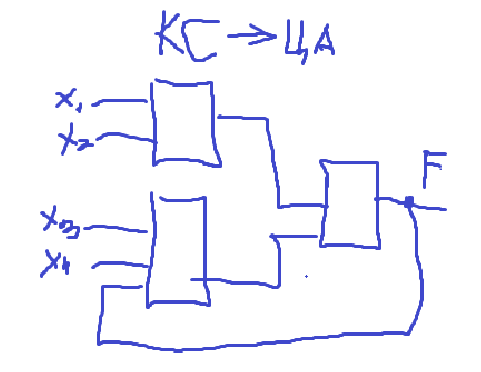 КС → ЦА
x₁
x₂
x₃
x₄
F